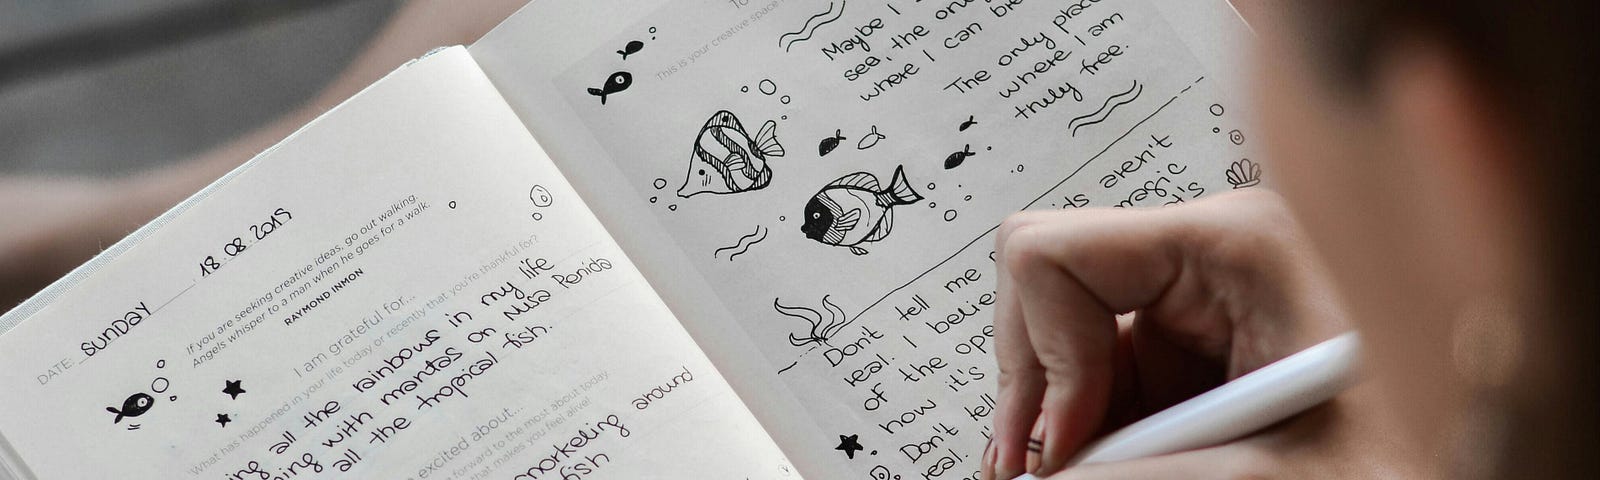 DATE: SUNDAY 18.08.2019
If you are seeking creative ideas, go out walking.
Angels whisper to a man when he goes for a walk.
RAYMOND INMON
I am grateful for...
What has happened in your life today or recently that you're thankful for?
all the rainbows in my life
with mantas on Nusa Penida
all the tropical fish.
excited about...
forward to the most about today
that makes you feel alive!
snorkeling around
fish
This is your creative space
Maybe I
sea, the only
where I can
The only place
where I am
truly free.
aren't
magic
Don't tell me
real. I
of the
how it's
Don't tell
real.